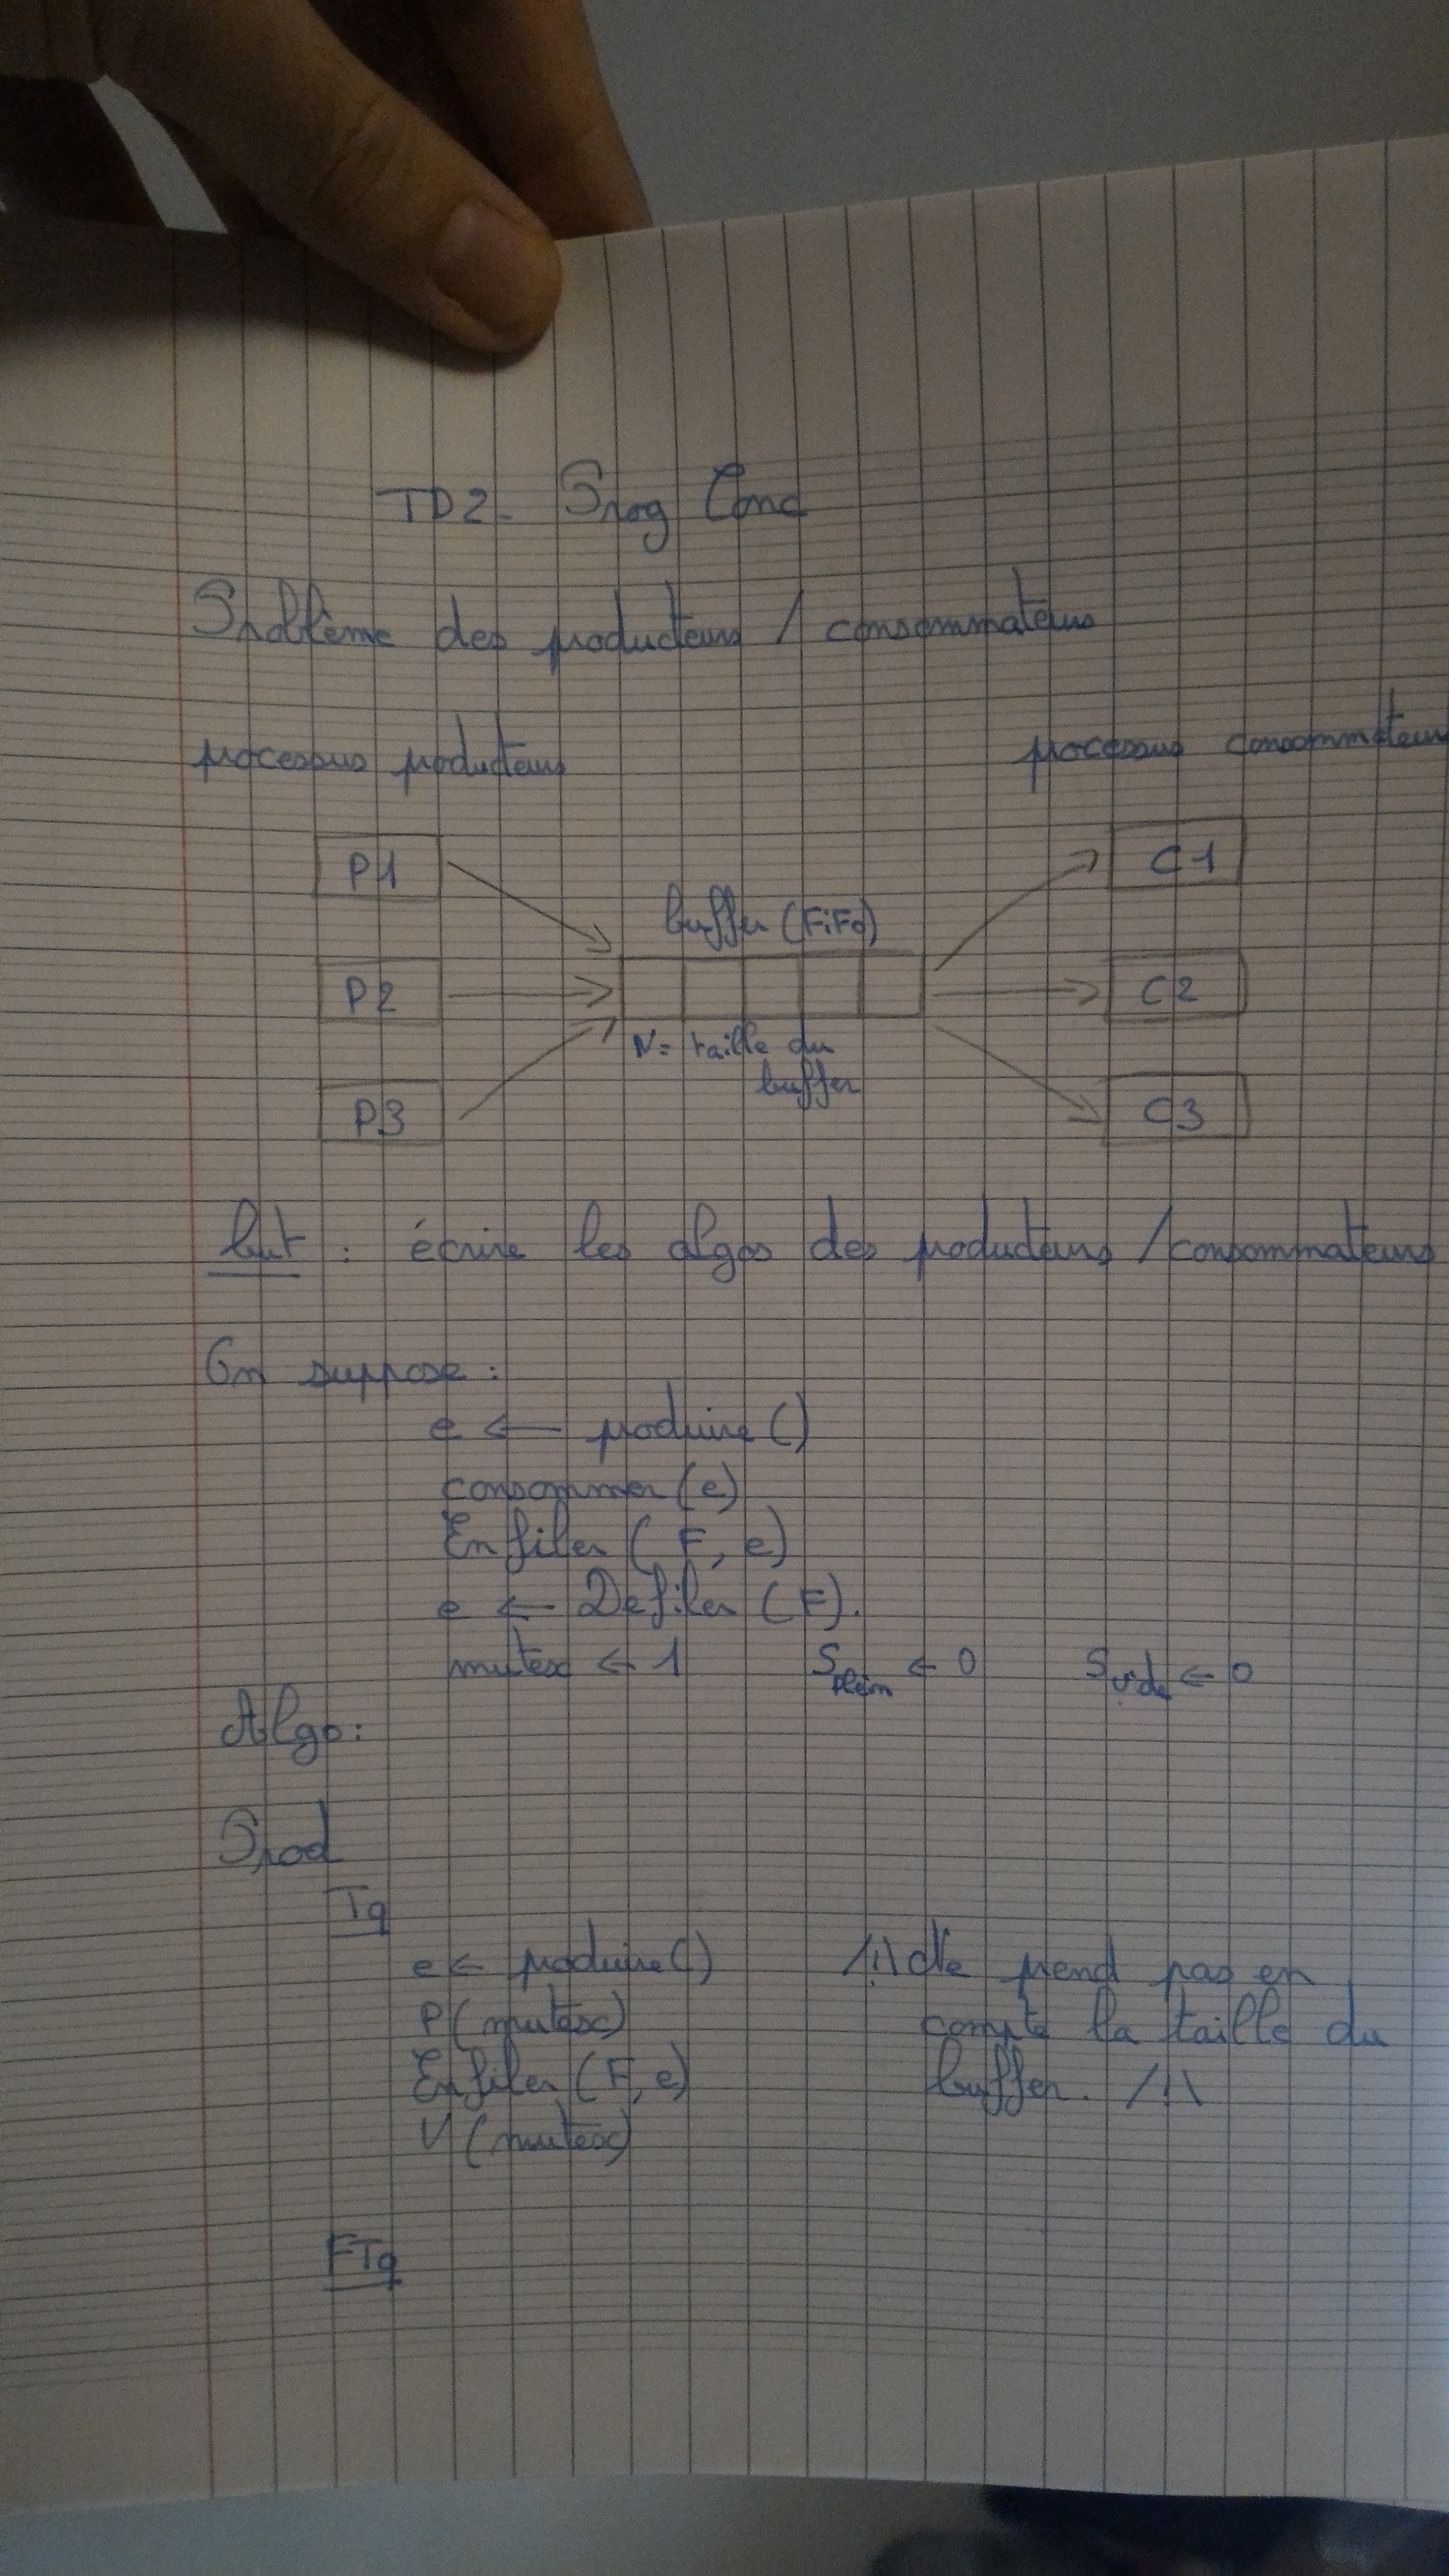 TD2 - Prog Conc
Problème des producteurs / consommateurs
processus producteurs
processus consommateurs
P1
C1
buffer (FiFo)
P2
C2
N = taille du
buffer
P3
C3
but : écrire les algos des producteurs / consommateurs
On suppose :
e ← produire ()
consommer (e)
Enfiler (F, e)
e ← Defiler (F).
mutex ← 1 S plein ← 0 S vide ← 0
Algo :
Prod
Tq
e ← produire () /!\ Ne prend pas en
P (mutex) compte la taille du
Enfiler (F, e) buffer. /!\
V (mutex)
FTq